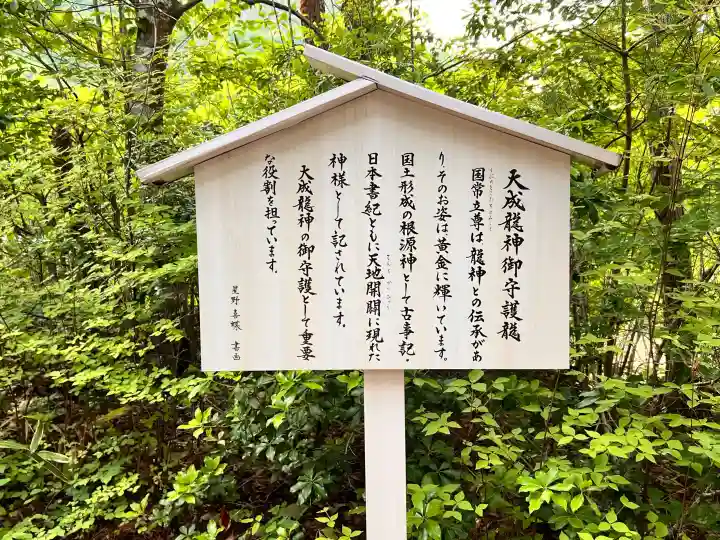 天成龍神御守護龍
国常立尊は龍神との伝承があ
り、そのお姿は黄金に輝いています。
国土形成の根源神として古事記・
日本書紀ともに天地開闢に現れた
神様として記されています。
天成龍神の御守護として重要
な役割を担っています。
星野 喜 書画